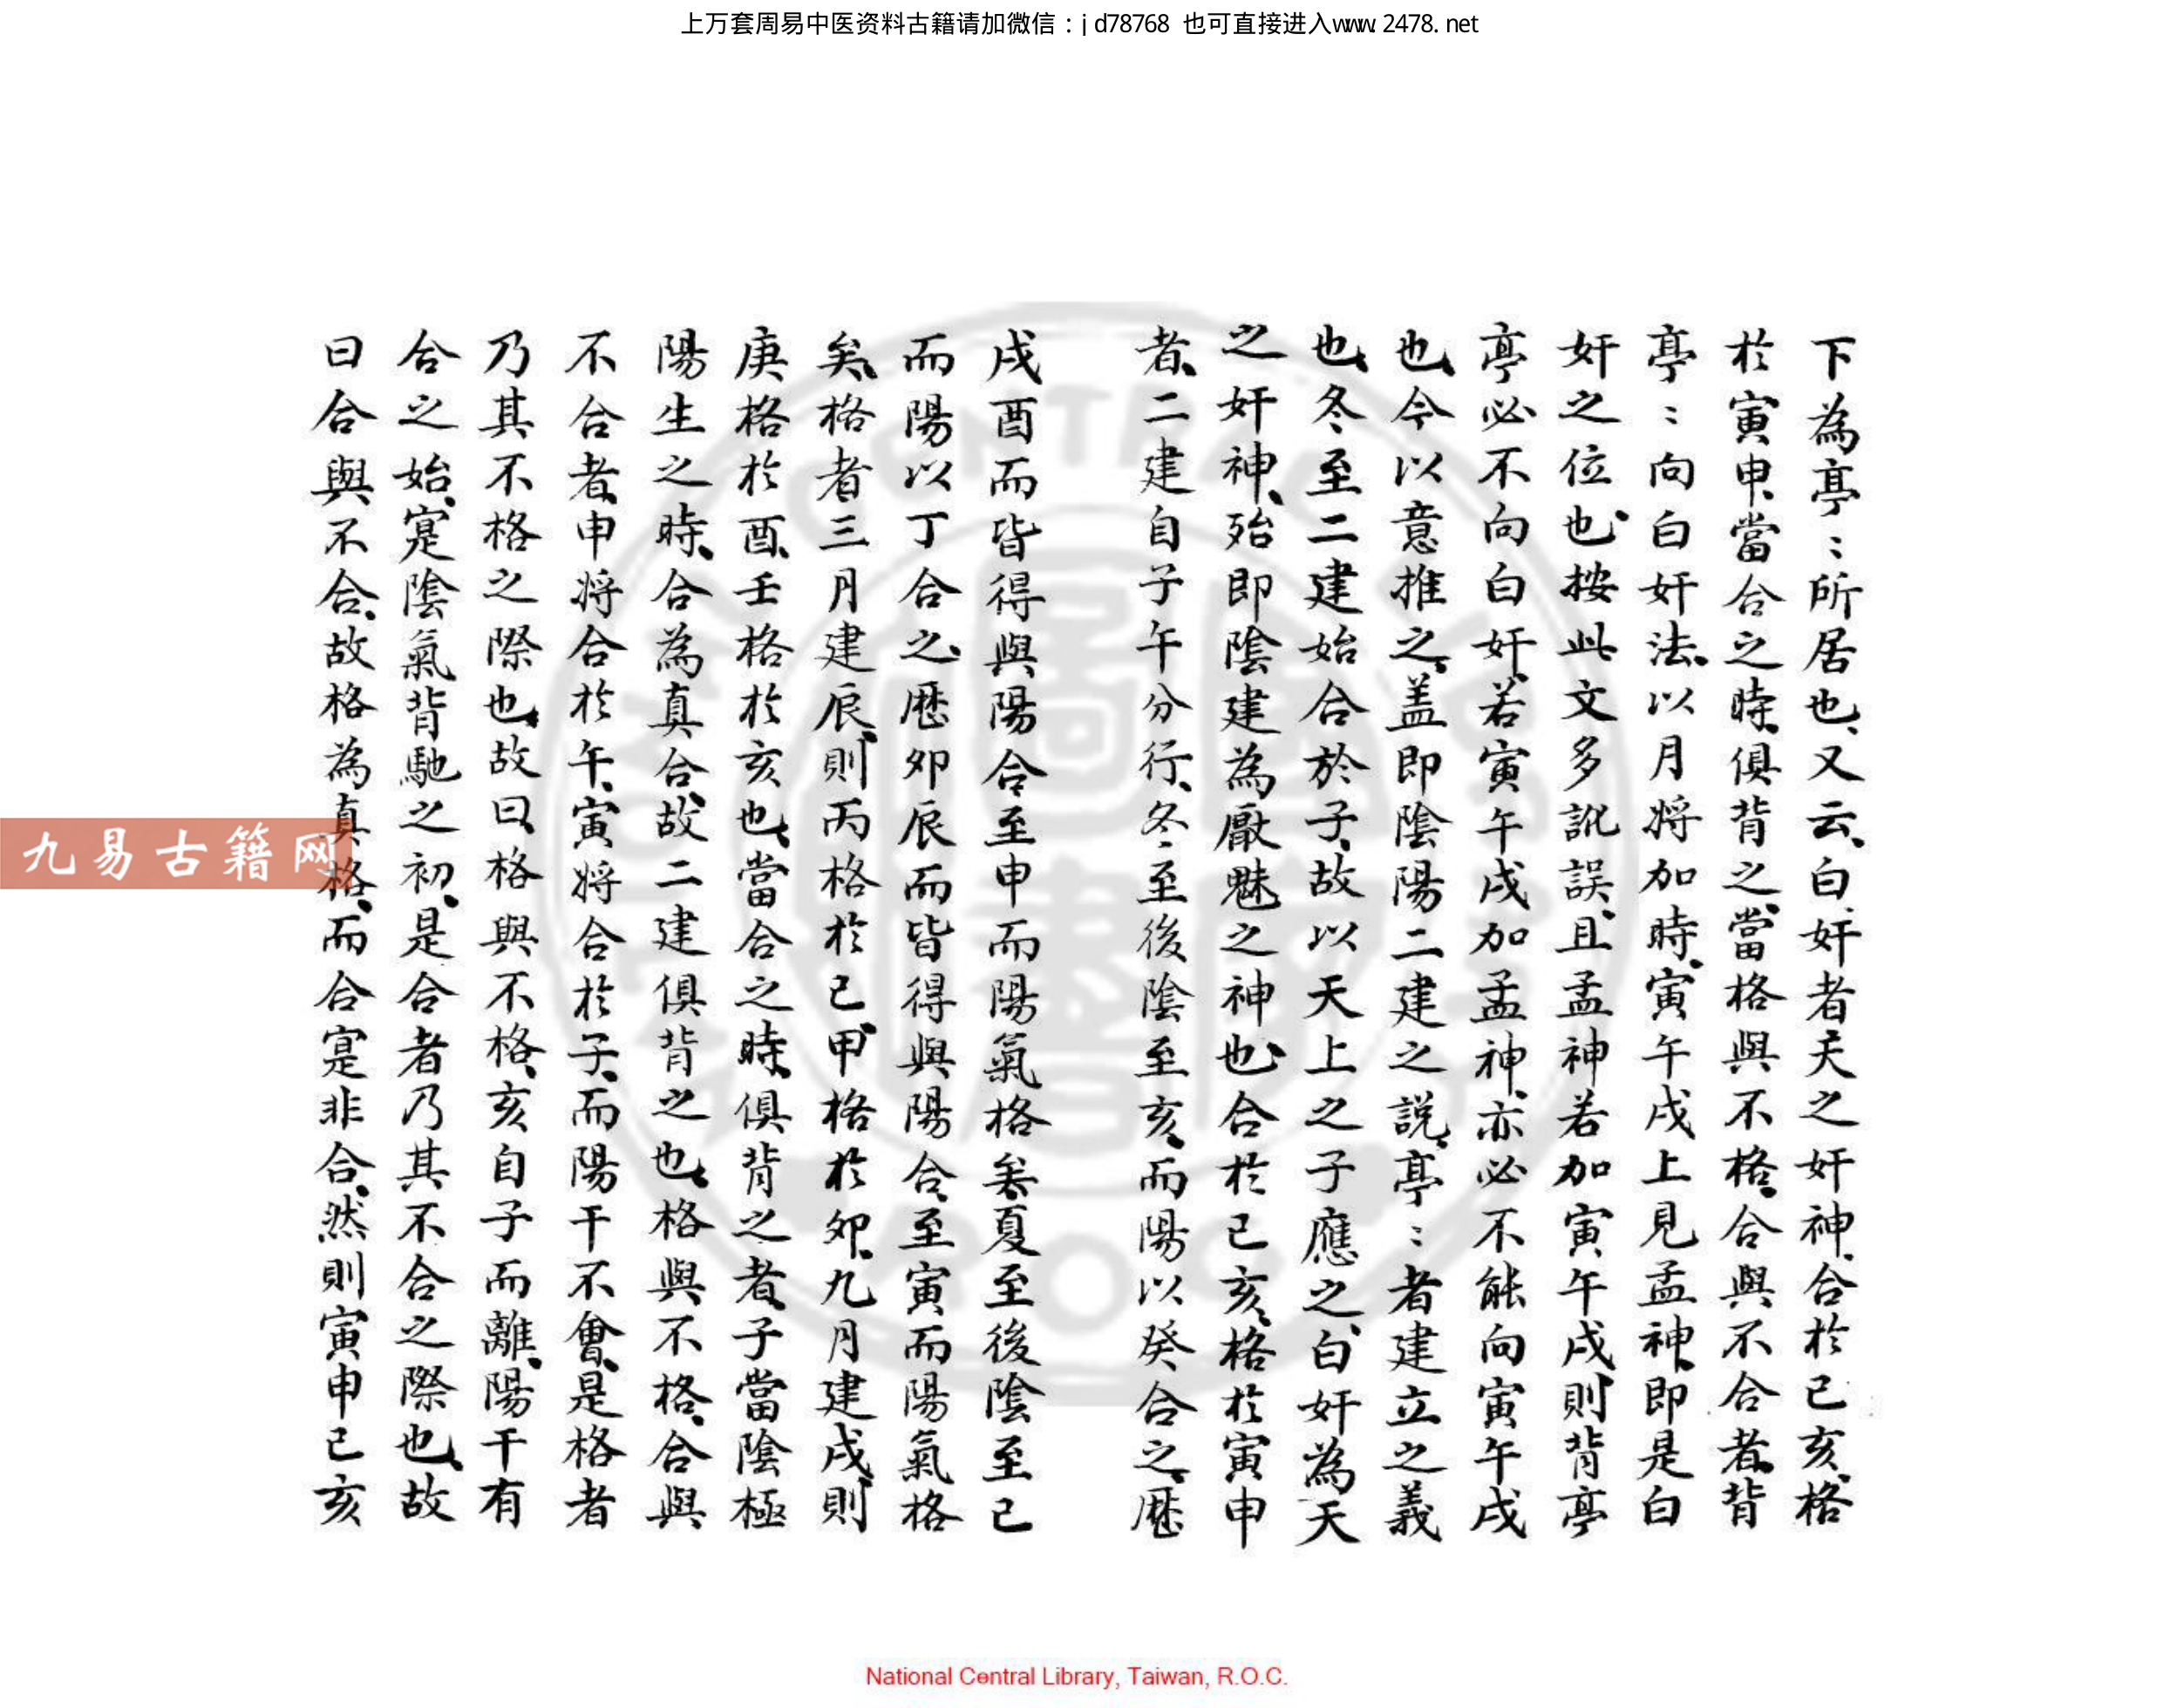 上万套周易中医资料古籍请加微信：jd78768 也可直接进入www.2478.net
下為亭〻所居也、又云、白奸者天之奸神、合於已亥、格
於寅申、當合之時、俱背之、當格與不格、合與不合者、背
亭〻向白奸法、以月将加時、寅午戌上見孟神、即是白
奸之位也、按此文多訛誤、且孟神若加寅午戌、則背亭
亭必不向白奸、若寅午戌加孟神、亦必不能向寅午戌
也、今以意推之、盖即陰陽二建之説、亭〻者建立之義
也、冬至二建始合於子、故以天上之子應之、白奸為天
之奸神、殆即陰建為厭魅之神也、合於已亥、格於寅申
者、二建自子午分行、冬至後陰至亥、而陽以癸合之、歴
戌酉而皆得與陽合至申而陽氣格矣、夏至後陰至已
而陽以丁合之、歴卯辰而皆得與陽合、至寅而陽氣格
矣、格者三月建辰、則丙格於已、甲格於卯、九月建戌、則
庚格於酉、壬格於亥也、當合之時、俱背之者、子當陰極
陽生之時、合為真合、故二建俱背之也、格與不格、合與
不合者、申将合於午、寅将合於子、而陽干不會、是格者
乃其不格之際也、故曰、格與不格、亥自子而離、陽干有
合之始、寔陰氣背馳之初、是合者乃其不合之際也、故
曰合與不合、故格為真格、而合寔非合、然則寅申已亥
九易古籍网
National Central Library, Taiwan, R.O.C.